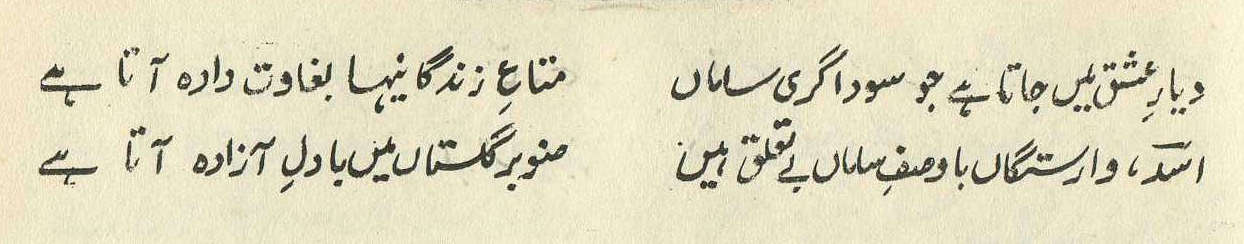 دیارِ عشق میں جاتا ہے جو سوداگری ساماں متاعِ زندگانیہا بغارت دادہ آتا ہے
اسدؔ، وارستگاں باوصفِ ساماں بے تعلق ہیں صنوبر گلستاں میں با دلِ آزادہ آتا ہے